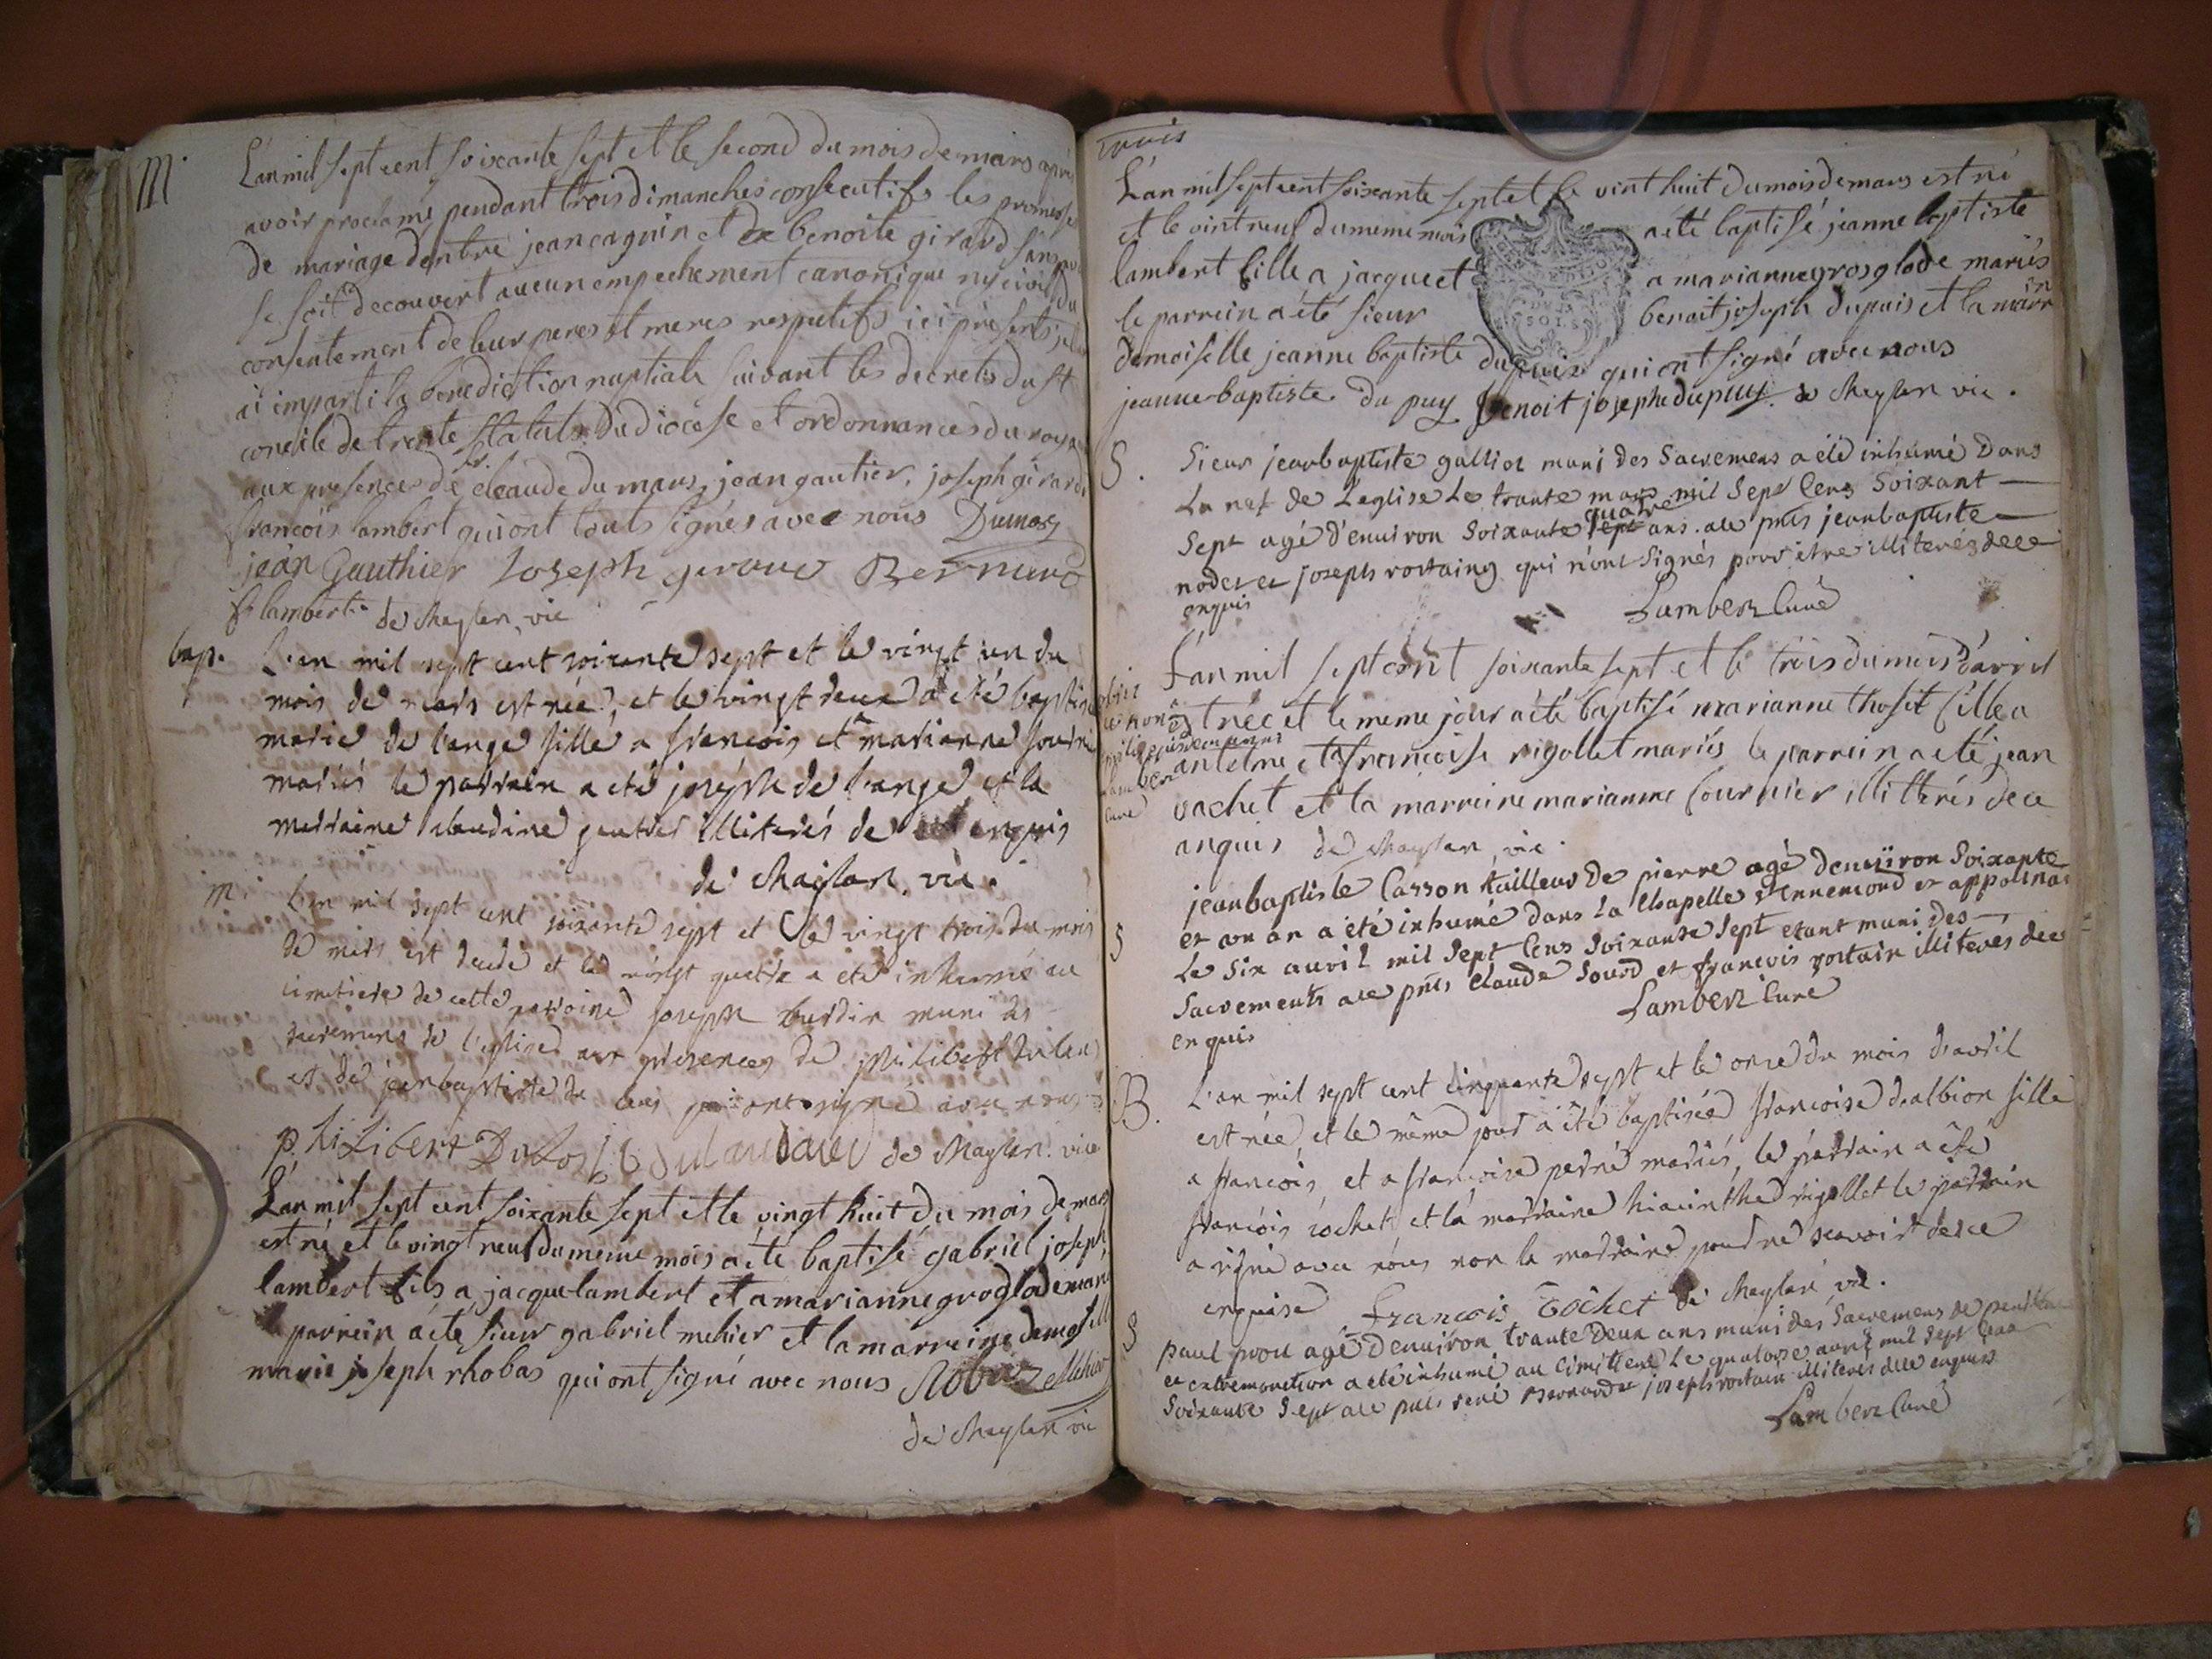 M.
L'an mil sept cent soixante sept et le second du mois de mars après
avoir proclamé pendant trois dimanches consecutifs les promesses
de mariage dentre jean caguin et de benoite girard sans
se soit decouvert aucun empechement canonique ny civil du
consentement de leur peres et meres respectifs ici présents je
ai imparti la benediction nuptiale suivant les decrets du st
concile de trente statuts du diocèse et ordonnances du
aux presences de sr. cleaude du mars, jean gautier, joseph girard
francois lambert qui ont touts signés avec nous Dumas
jean Gauthier Joseph geraud Bernard
f. lambert de Meylan vic
bap. L'an mil sept cent soixante sept et le vingt un du
mois de mars est née, et le vingt deux a été baptisé
marie de lange fille a francois et a marianne
mariés le parrain a eté joseph de lange et la
marraine claudine gautier illiterés de enquis
de Maylan. vic.
m. L'an mil sept cent soixante sept et le vingt trois du mois
de mars est décédé et le vingt quatre a été inhumé au
cimitiere de cette paroisse joseph burdin muni des
sacremens de l'eglise aux presences de philibert
et de jean baptiste de qui ont signé avec nous
philibert de Maylan. vic
L'an mil sept cent soixante sept et le vingt huit du mois de mars
est né et le vingt neuf du meme mois a été baptisé gabriel joseph
lambert fils a jacque lambert et a marianne groglode mariés
parrein a été sieur gabriel mehier et la marreine demoiselle
marie joseph rhobas qui ont signé avec nous Robas Mehier
de Meylan vic
trois
L'an mil sept cent soixante sept et le vint huit du mois de mars est né
et le vint neuf du meme mois a été baptisé jeanne baptiste
lambert fille a jacque et a marianne grosglode mariés
le parrein a été sieur benoit joseph dupuis et la marrein
demoiselle jeanne baptiste dupuis qui ont signé avec nous
jeanne baptiste du puy benoit josephe dupuy de Meylan vic.
S. Sieur jeanbaptiste galliot muni des Sacremens a été inhumé Dans
La nef de L'eglise Le trante mars mil Sept Cens Soixant
Sept agé d'environ Soixante quatre sept ans. aux pnts jeanbaptiste
nodet et joseph rostaing qui n'ont Signés pour être illiterés de ce
enquis
Lambert Curé
L'an mil sept cent soixante sept et le trois du mois d'avril
est née et le meme jour a été baptisé marianne thosit fille a
antelme et a francoise rigollet mariés le parrein a eté jean
vachet et la marreine marianne fournier illitterés de ce
anquis de Maylan, vic.
jeanbaptiste Casson tailleur De pierre agé denuiron Soixante
S
et un an a été inhumé dans La Chapelle St Ennemond et appolinar
Le Six avril mil Sept Cens Soixante Sept etant muni des
Sacrements aux pnts Claude Sourd et francois rostain illiteres de ce
enquis
Lambert Curé
B. L'an mil sept cent cinquante sept et le onze du mois d'avril
est née, et le même jour a été baptisée francoise dalbion fille
a francois, et a françoise perné mariés, le parrain a été
francois cochet, et la marraine hiacinthe rigollet le parrain
a signé avec nous non la marraine pour ne scavoir de ce
enquise Francois Cochet de Maylan, vic.
S
paul agé Denuiron trante Deux ans muni des Sacremens de penitence
et extremonction a été inhumé au Cimitiere Le quatorze avril mil Sept Cens
Soixante Sept aux pnts rené Bernard et joseph rostain illiteres de ce enquis
Lambert Curé